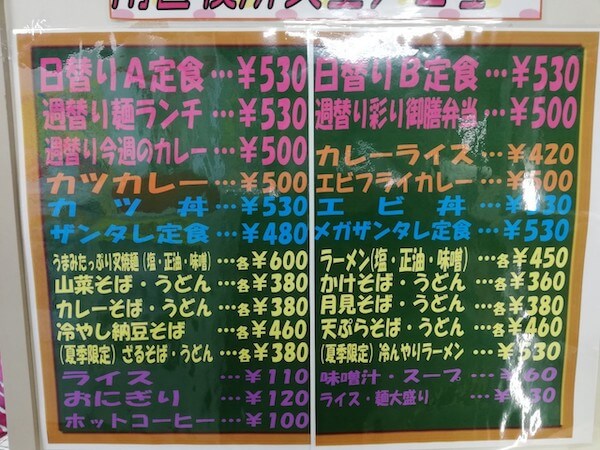 日替りA定食…￥530
週替り麺ランチ…￥530
週替り今週のカレー…￥500
カツカレー…￥500
カツ丼…￥530
ザンタレ定食…￥480
うまみたっぷり叉焼麺(塩・正油・味噌)…各￥600
山菜そば・うどん…各￥380
カレーそば・うどん…各￥380
冷やし納豆そば…各￥460
(夏季限定)ざるそば・うどん…各￥380
ライス…￥110
おにぎり…￥120
ホットコーヒー…￥100
日替りB定食…￥530
週替り彩り御膳弁当…￥500
カレーライス…￥420
エビフライカレー…￥500
エビ丼…￥530
メガザンタレ定食…￥530
ラーメン(塩・正油・味噌)…各￥450
かけそば・うどん…各￥360
月見そば・うどん…各￥380
天ぷらそば・うどん…各￥460
(夏季限定)冷んやりラーメン…￥530
味噌汁・スープ…￥60
ライス・麺大盛り…￥30